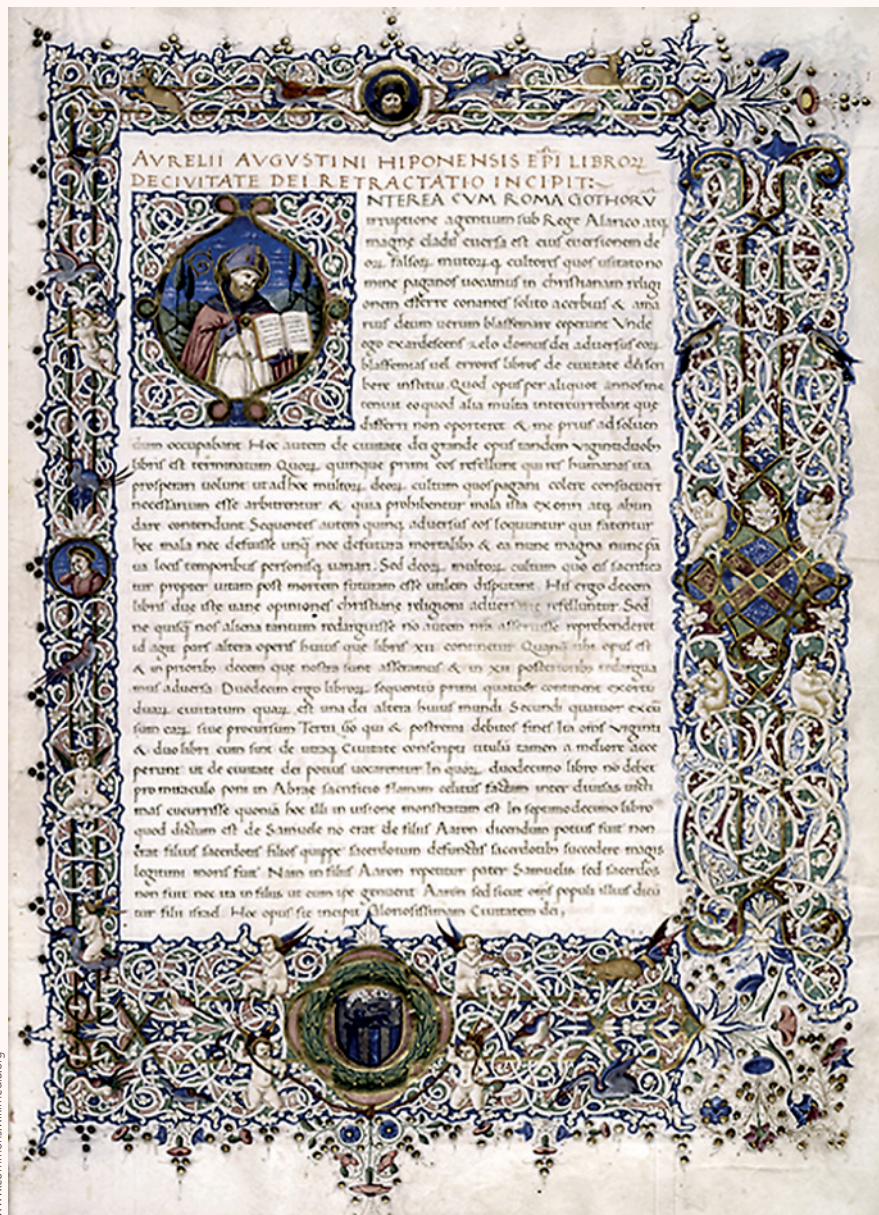 AVRELII AVGVSTINI HIPONENSIS EPI LIBROꝜ
DECIVITATE DEI RETRACTATIO INCIPIT:
NTEREA CVM ROMA GOTHORV̄
irruptione agentium sub Rege Alarico atq,
magne cladis euersa est eius euersionem de
oꝝ falsoꝝ multoꝝ q, cultores quos usitato no
mine paganos uocamus in christianam religi
onem referre conantes solito acerbius & ama
rius deum uerum blasfemare ceperunt Vnde
ego exardescens zelo domus dei aduersus eoꝝ
blasfemias uel errores libros de ciuitate dei scri
bere institui. Quod opus per aliquot annos me
tenuit eo quod alia multa intercurrebant que
differri non oporteret & me prius ad soluen
dum occupabant. Hoc autem de ciuitate dei grande opus tandem uigintiduob,
libris est terminatum Quoꝝ quinque primi eos refellunt qui res humanas ita
prosperari uolunt ut ad hoc multoꝝ deoꝝ cultum quos pagani colere consueuert
necessarium esse arbitrentur & quia prohibentur mala ista exoriri atq, abun
dare contendunt Sequentes autem quinq, aduersus eos loquuntur qui fatentur
hec mala nec defuisse unq̄ nec defutura mortalib, & ea nunc magna nunc pa
ua locis temporibus personisq, uariari. Sed deoꝝ multoꝝ cultum quo eis sacrifica
tur propter uitam post mortem futuram esse utilem disputant. His ergo decem
libris due iste uane opiniones christiane religioni aduersarie refelluntur Sed
ne quisq̄ nos aliena tantum redarguisse no autem nr̄a asseruisse reprehenderet
id agit pars altera operis huius que libris XII continetur Quanq̄ ubi opus est
& in priorib, decem que nostra sunt asseramus & in XII posteriorib, redargua
mus aduersa. Duodecim ergo libroꝝ sequentiū primi quatuor continent exortū
duaꝝ ciuitatum quaꝝ est una dei altera huius mundi. Secundi quatuor excū
sum eaꝝ siue procursum Tertii ūo qui & postremi debitos fines Ita om̄s uiginti
& duo libri cum sint de utraq, Ciuitate conscripti titulū tamen a meliore acce
perunt ut de ciuitate dei potius uocarentur In quoꝝ duodecimo libro no debet
pro miraculo poni in Abrae sacrificio flamam celitus factam inter diuisas uicti
mas cucurrisse quoniā hoc illi in uisione monstratum est In septimodecimo libro
quod dictum est de Samuele no erat de filiis Aaron dicendum potius fuit non
erat filius sacerdotis filios quippe sacerdotum defunctis sacerdotib, succedere magis
legitimi moris fuit Nam in filiis Aaron repetitur pater Samuelis sed sacerdos
non fuit nec ita in filiis ut eum ipe genuerit Aaron sed sicut om̄s populi illius dicū
tur filii israel. Hoc opus sic incipit Gloriosissimam Ciuitatem dei,